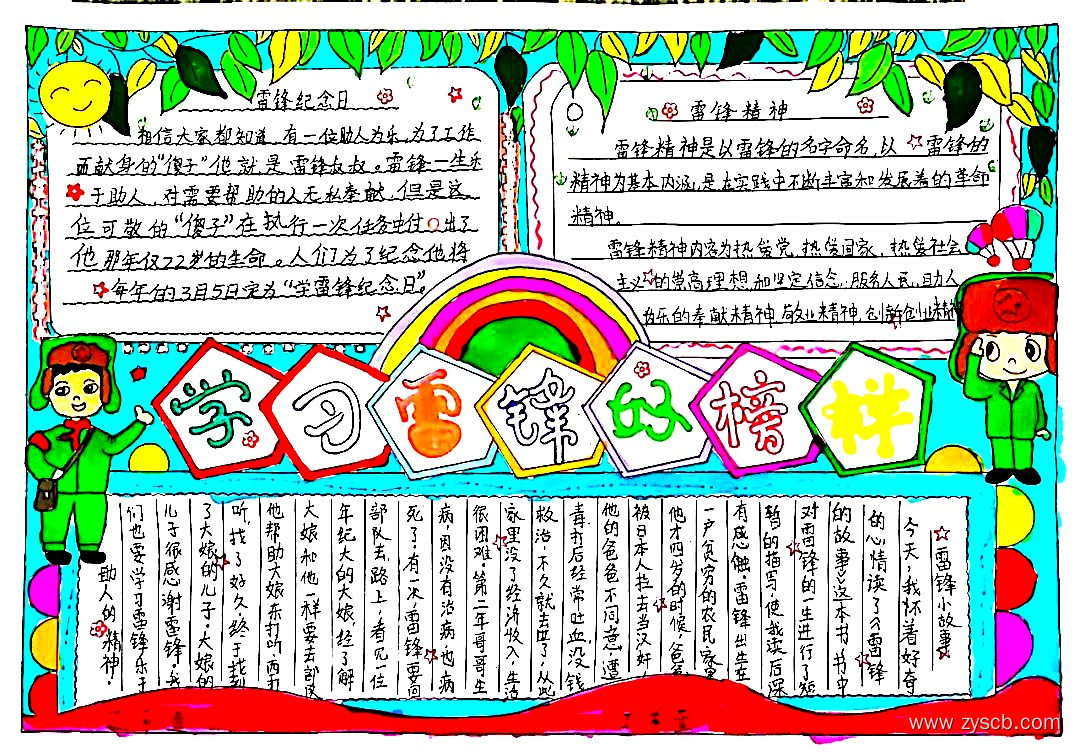 雷锋纪念日
相信大家都知道,有一位助人为乐,为了工作
而献身的“傻子”他就是雷锋叔叔。雷锋一生乐
于助人,对需要帮助的人无私奉献,但是这
位可敬的“傻子”在执行一次任务中付出了
他那年仅22岁的生命。人们为了纪念他将
每年的3月5日定为“学雷锋纪念日”。
雷锋精神
雷锋精神是以雷锋的名字命名,以雷锋的
精神为基本内涵,是在实践中不断丰富和发展着的革命
精神。
雷锋精神内容为热爱党,热爱国家,热爱社会
主义的崇高理想和坚定信念,服务人民,助人
为乐的奉献精神,敬业精神,创新创业精神
学习雷锋好榜样
雷锋小故事
今天,我怀着好奇
的心情读了《雷锋
的故事》这本书,书中
对雷锋的一生进行了短
暂的描写,使我读后深
有感触。雷锋出生在
一户贫穷的农民家里
他才四岁的时候,爸爸
被日本人拉去当汉奸
他的爸爸不同意,遭
毒打后经常吐血,没钱
救治,不久就去世了,从此
家里没了经济收入,生活
很困难。第二年哥哥生
病,因没有治病也病
死了,有一次,雷锋要回
部队去,路上,看见一位
年纪大的大娘,经了解
大娘和他一样要去部队
他帮助大娘东打听,西打
听,找了好久,终于找到
了大娘的儿子,大娘的
儿子很感谢雷锋,我
们也要学习雷锋乐于
助人的精神。
www.zyscb.com